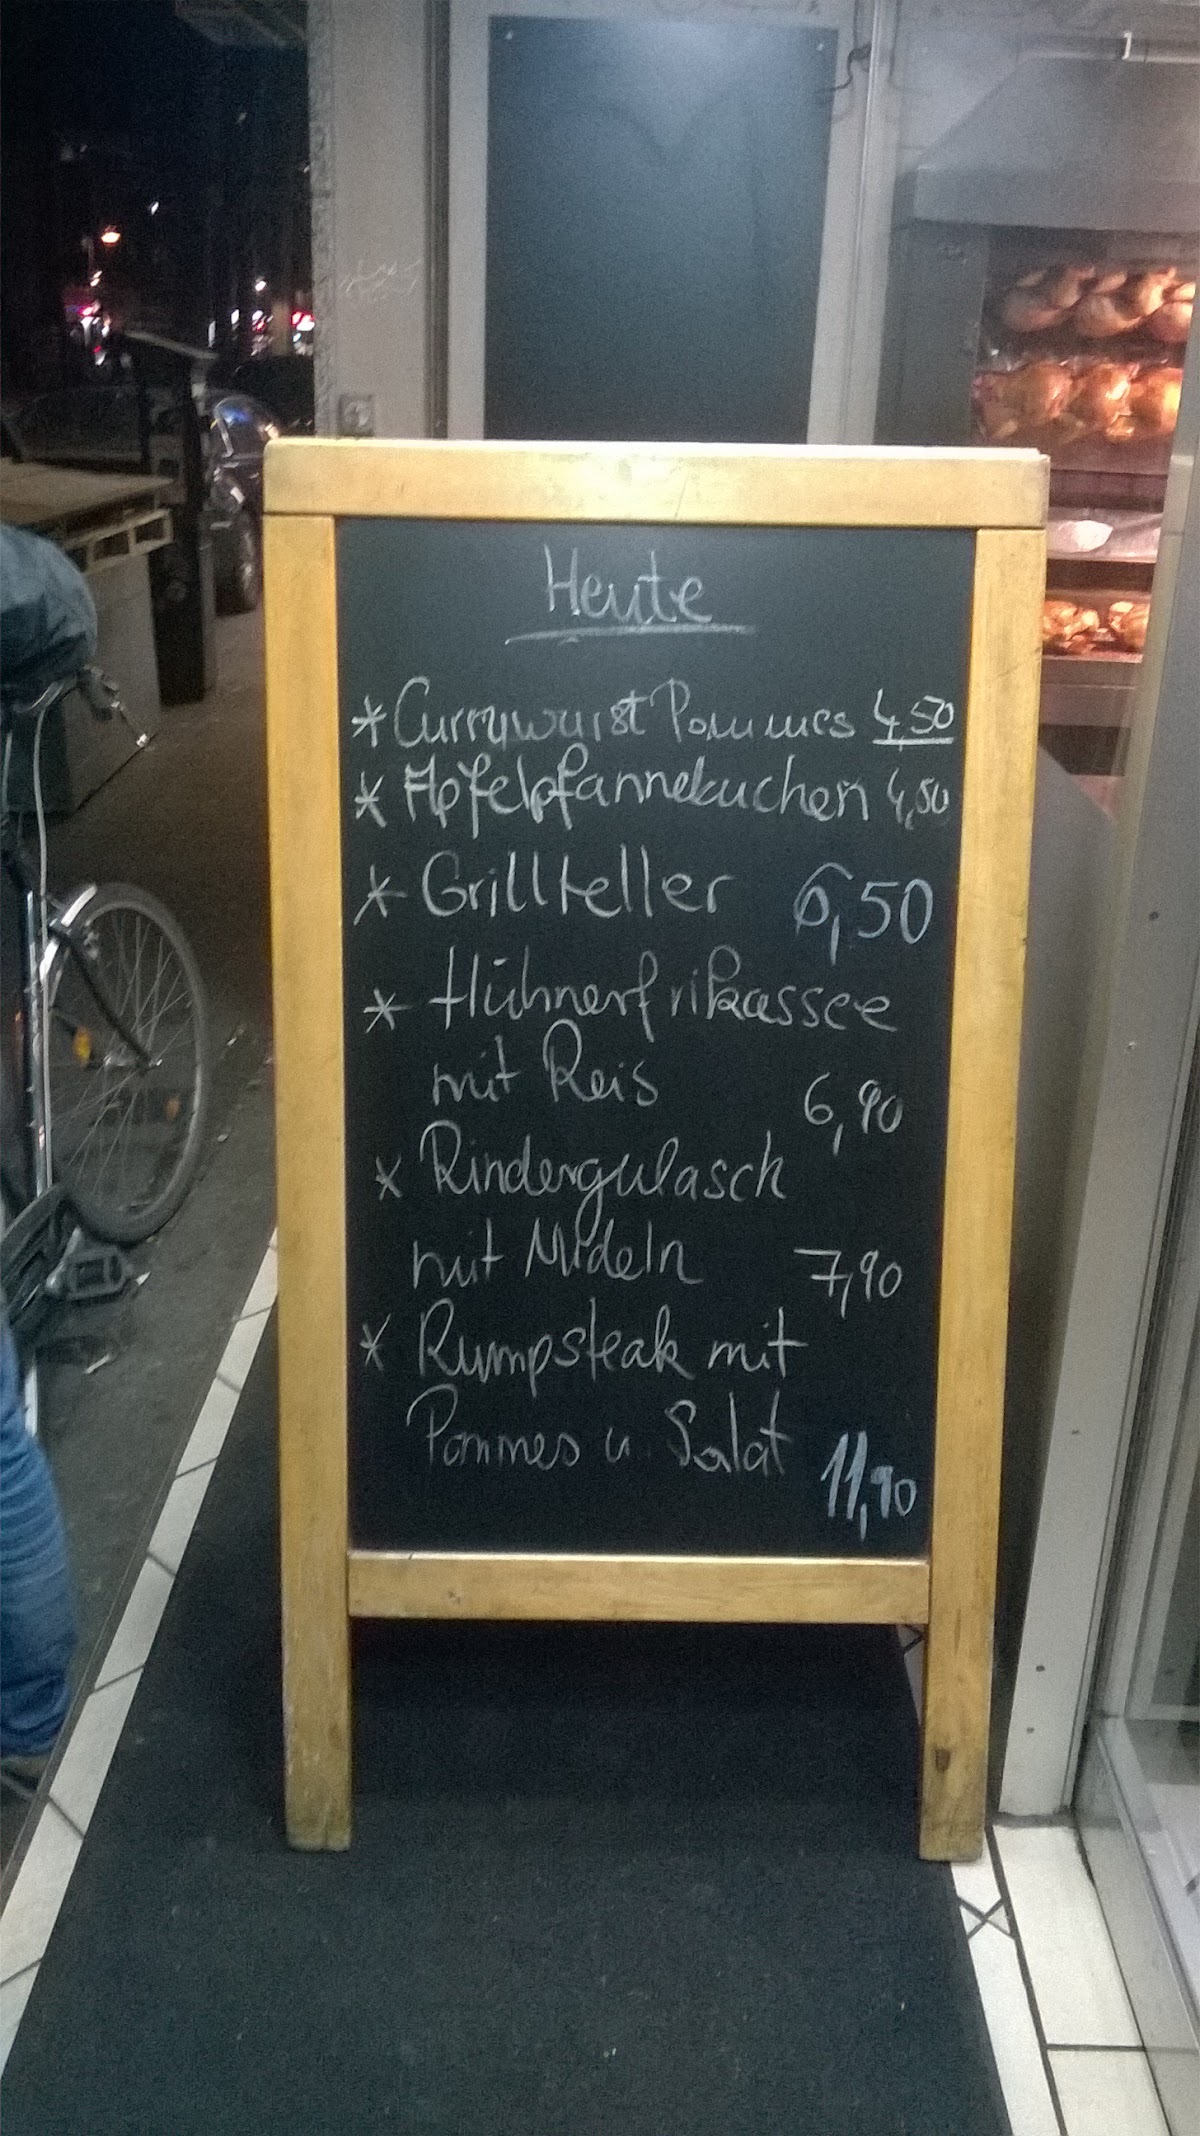 Heute
* Currywurst Pommes 4,50
* Apfelpfannekuchen 4,50
* Grillteller 6,50
* Hühnerfrikassee
mit Reis 6,90
* Rindergulasch
mit Nudeln 7,90
* Rumpsteak mit
Pommes u. Salat 11,90